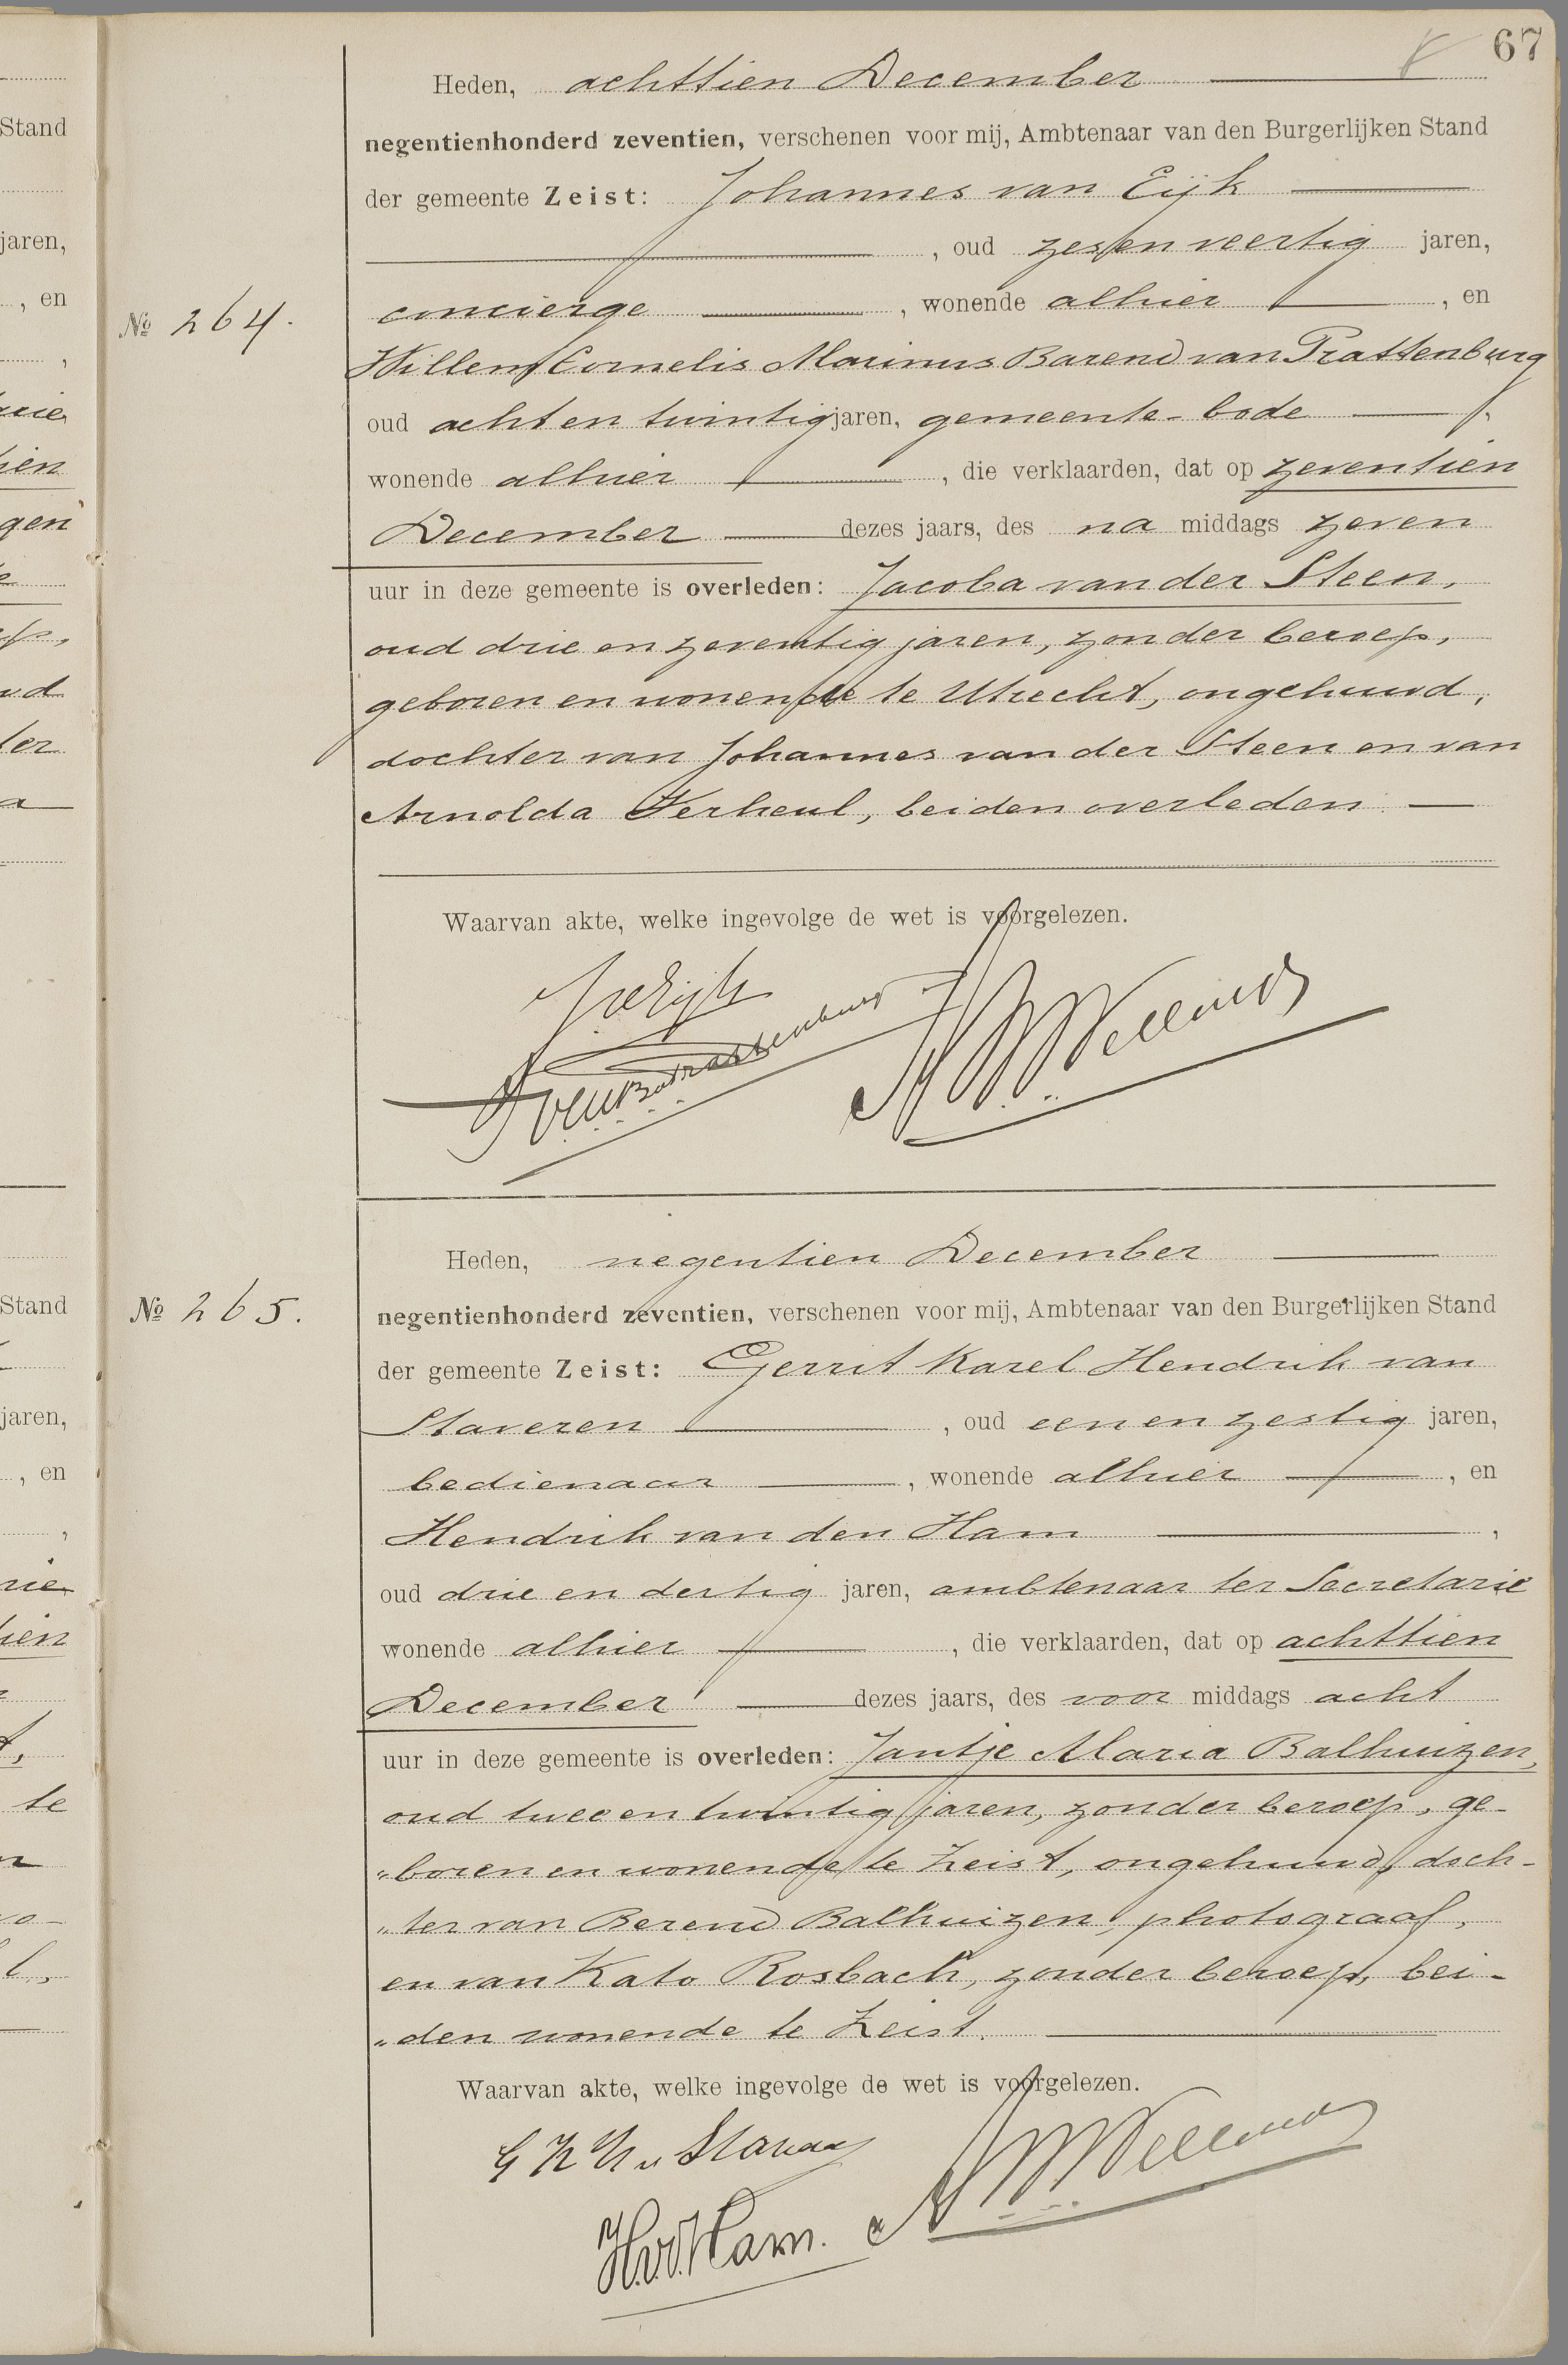 67
Heden, achttien December
negentienhonderd zeventien, verschenen voor mij, Ambtenaar van den Burgerlijken Stand
der gemeente Zeist: Johannes van Eijk
, oud zes en veertig jaren,
concierge , wonende alhier , en
Nº 264.
Willem Cornelis Marinus Barend van Trattenburg
oud acht en twintig jaren, gemeente-bode ,
wonende alhier , die verklaarden, dat op zeventien
December dezes jaars, des na middags zeven
uur in deze gemeente is overleden: Jacoba van der Steen,
oud drie en zeventig jaren, zonder beroep,
geboren en wonende te Utrecht, ongehuwd,
dochter van Johannes van der Steen en van
Arnolda Verheul, beiden overleden
Waarvan akte, welke ingevolge de wet is voorgelezen.
JvEijk
Heden, negentien December
Nº 265.
negentienhonderd zeventien, verschenen voor mij, Ambtenaar van den Burgerlijken Stand
der gemeente Zeist: Gerrit Karel Hendrik van
Staveren , oud een en zestig jaren,
bedienaar , wonende alhier , en
Hendrik van den Ham ,
oud drie en dertig jaren, ambtenaar ter Secretarie
wonende alhier , die verklaarden, dat op achttien
December dezes jaars, des voor middags acht
uur in deze gemeente is overleden: Jantje Maria Balhuizen,
oud twee en twintig jaren, zonder beroep, ge-
"boren en wonende te Zeist, ongehuwd, doch-
"ter van Berend Balhuizen, photograaf,
en van Kato Rosbach, zonder beroep, bei-
"den wonende te Zeist.
Waarvan akte, welke ingevolge de wet is voorgelezen.
G K H v Staveren
H.v.d.Ham.
Stand
jaren,
, en
,
gen
Stand
jaren,
, en
,
te